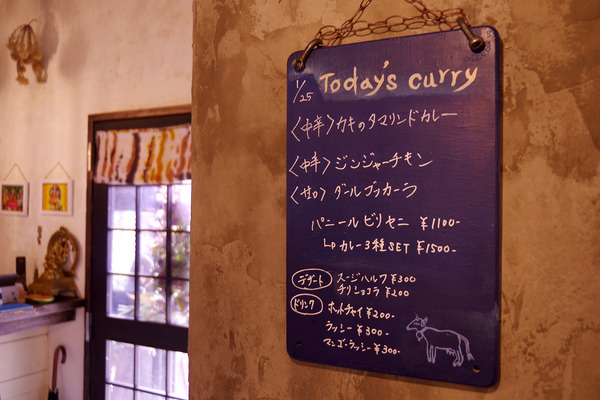 1/25 Today's curry
〈中辛〉カキのタマリンドカレー
〈中辛〉ジンジャーチキン
〈甘口〉ダールゴッカーラ
パニールビリセニ ¥1100-
↳カレー3種SET ¥1500-
デザート スージハルワ ¥300
チリショコラ ¥200
ドリンク ホットチャイ ¥200-
ラッシー ¥300-
マンゴーラッシー ¥300-